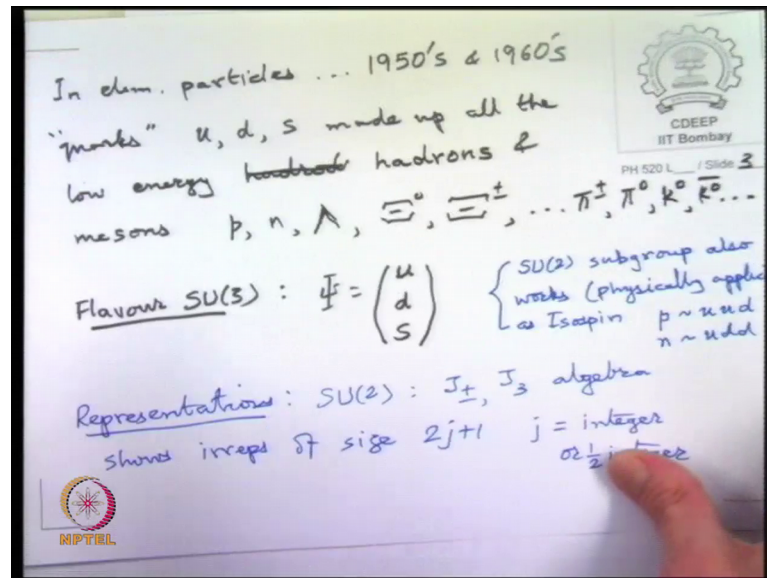 In elem. particles ... 1950's & 1960's
"quarks" u, d, s made up all the
low energy hadrons &
mesons p, n, Λ, Ξ⁰, Ξ±, ... π±, π⁰, K⁰, K̄⁰...
Flavour SU(3) : Ψ = (u d s)
{ SU(2) subgroup also
works (physically applic
as Isospin p ~ uud
n ~ udd
Representations : SU(2) : J±, J₃ algebra
shows irreps of size 2j+1 j = integer
or ½
CDEEP
IIT Bombay
PH 520 L___ / Slide 3
NPTEL